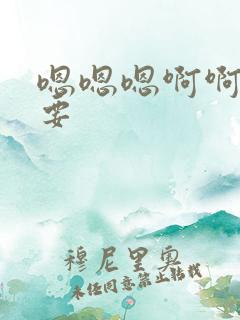 嗯嗯嗯啊啊
要
穆尼里奥
未经同意禁止转载